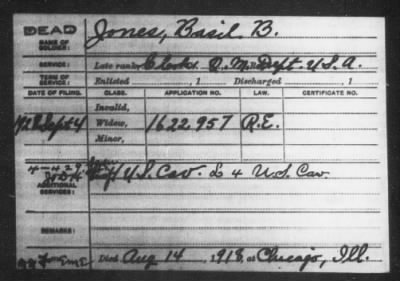 DEAD
NAME OF SOLDIER: Jones, Basil B.
SERVICE: Late rank, Clerk Q. M. Dept. U.S.A.
TERM OF SERVICE: Enlisted , 1 Discharged , 1
DATE OF FILING. CLASS. APPLICATION NO. LAW. CERTIFICATE NO.
Invalid,
Sept 4 Widow, 1622957 R.E.
Minor,
4-4 29
ADDITIONAL SERVICES: U.S. Cav. L 4 U.S. Cav.
REMARKS:
Died Aug 14, 1918, at Chicago, Ill.